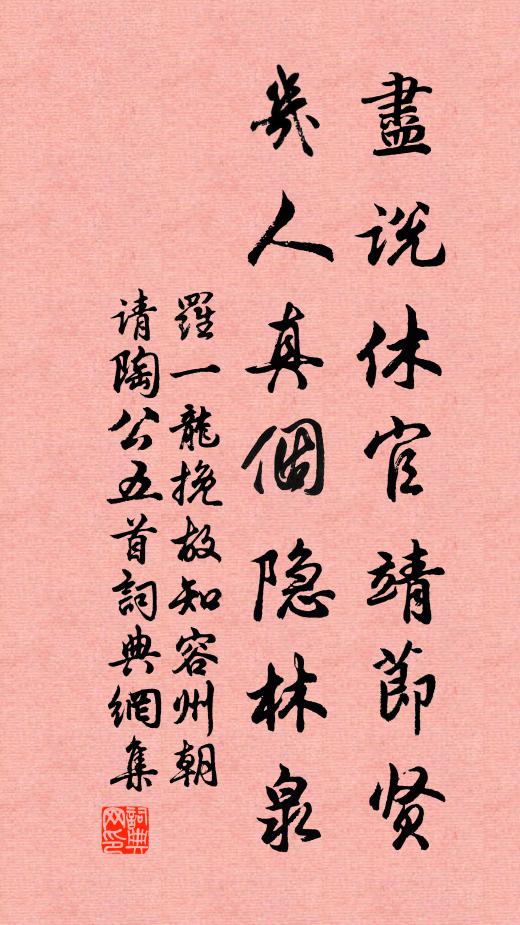 盡说休官靖節贤
幾人真個隐林泉
羅一龍挽故知容州朝
请陶公五首詞典網集
詞典网印